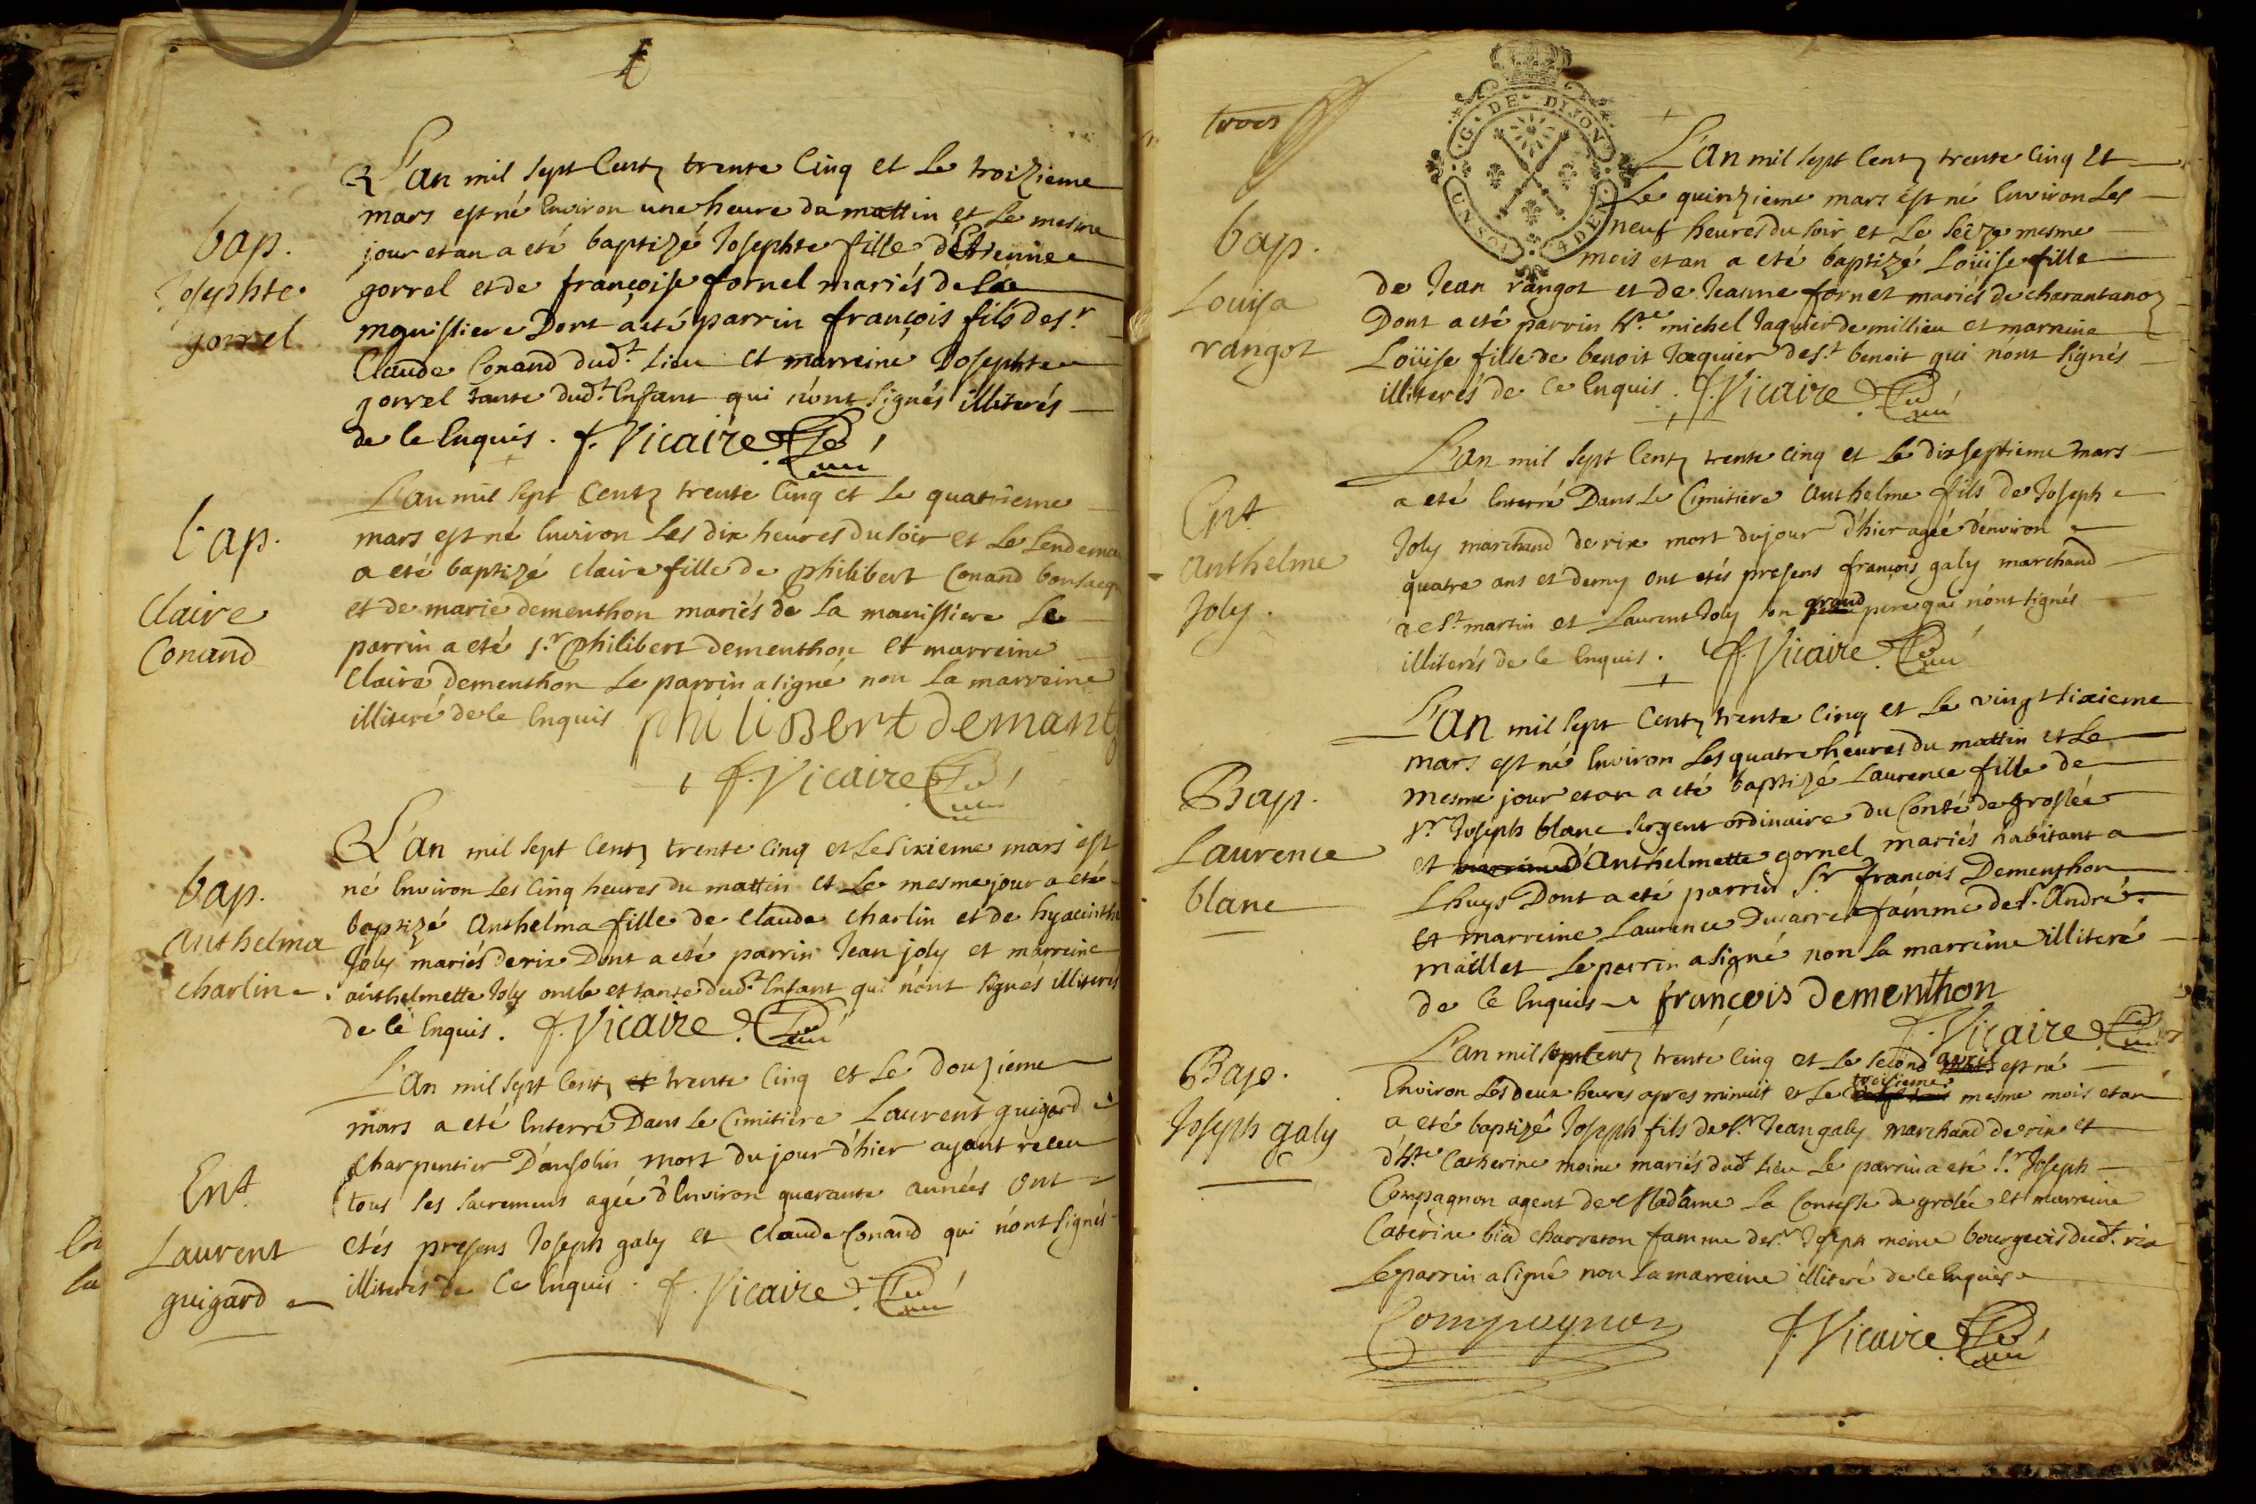 bap.
Josephte
gorrel
L'an mil sept Centz trente Cinq et Le troizieme
mars est né Environ une heure du mattin et Le mesme
jour et an a eté baptizé Josephte fille d'Etienne
gorrel et de françoise fornel mariés de La
mouissiere Dont a eté parrin françois fils de sr
Claude Conand dudt. Lieu et marreine Josephte
gorrel tante dudt. Enfant qui n'ont signés illiterés
de ce Enquis. f. Vicaire Curé
bap.
Claire
Conand
L'an mil sept Centz trente Cinq et Le quatrieme
mars est né Environ Les dix heures du soir et Le Lendemain
a eté baptizé Claire fille de philibert Conand
et de marie dementhon mariés de La mouissiere Le
parrin a eté sr. philibert dementhon et marreine
Claire dementhon Le parrin a signé non La marreine
illiteré de ce Enquis philibert demant
f. Vicaire Curé
bap.
Anthelma
Charlin
L'an mil sept Centz trente Cinq et Le sixieme mars est
né Environ Les Cinq heures du mattin et Le mesme jour a eté
baptizé Anthelma fille de Claude Charlin et de hyacinthe
Joly mariés de rix Dont a eté parrin Jean joly et marreine
anthelmette Joly oncle et tante dudt. Enfant qui n'ont signés illiterés
de ce Enquis. f. Vicaire Curé
Ent
Laurent
guigard
L'an mil sept Centz et trente Cinq et Le douzieme
mars a eté Enterré Dans Le Cimitiere Laurent guigard
Charpentier D'ansolin mort du jour d'hier ayant receu
tous les sacremens agée d'Environ quarante années ont
etés presens Joseph galy et Claude Conand qui n'ont signés
illiterés de Ce Enquis. f. Vicaire Curé
trois
G. DE DIJON
UN SOL 4 DEN.
bap.
Louisa
rangot
L'an mil sept Centz trente Cinq et
Le quinzieme mars est né Environ Les
neuf heures du soir et Le seize mesme
mois et an a eté baptizé Loüise fille
de Jean rangot et de Jeanne fornet mariés de charantanoz
Dont a eté parrin michel Jaquier de millieu et marraine
Loüise fille de benoit Jaquier de st benoit qui n'ont signés
illiterés de Ce Enquis. f. Vicaire Curé
Ent
Anthelme
Joly.
L'an mil sept Centz trente Cinq et Le dix septieme mars
a eté Enterré Dans Le Cimitiere Anthelme fils de Joseph
Joly marchand de rix mort du jour d'hier agée d'environ
quatre ans et demy ont etés presens françois galy marchand
de st martin et Laurent Joly son grand pere qui n'ont signés
illiterés de ce Enquis. f. Vicaire Curé
Bap.
Laurence
blanc
L'an mil sept Centz trente Cinq et Le vingt sixieme
mars est né Environ Les quatre heures du mattin et Le
mesme jour et an a eté baptizé Laurence fille de
sr Joseph blanc sergent ordinaire du Conté de groslée
et d'Anthelmette gornel mariés habitant a
Lhuys Dont a eté parrin sr françois Dementhon
et marreine Laurence Ducarre famme de sr. André
maillet Le parrin a signé non La marreine illiteré
de Ce Enquis françois dementhon
f. Vicaire Curé
Bap.
Joseph galy
L'an mil sept Centz trente Cinq et Le second avril est né
Environ Les deux heures apres minuit et Le troisieme mesme mois et an
a eté baptizé Joseph fils de sr. Jean galy marchand de rix et
d'hte Catherine moine mariés dudt Lieu Le parrin a eté sr. Joseph
Compagnon agent de Madame La Contesse de grolée et marreine
Caterine bia Charreton famme de sr Joseph moine bourgeois dudt. rix
Le parrin a signé non La marreine illiteré de ce Enquis
Compagnon f. Vicaire Curé